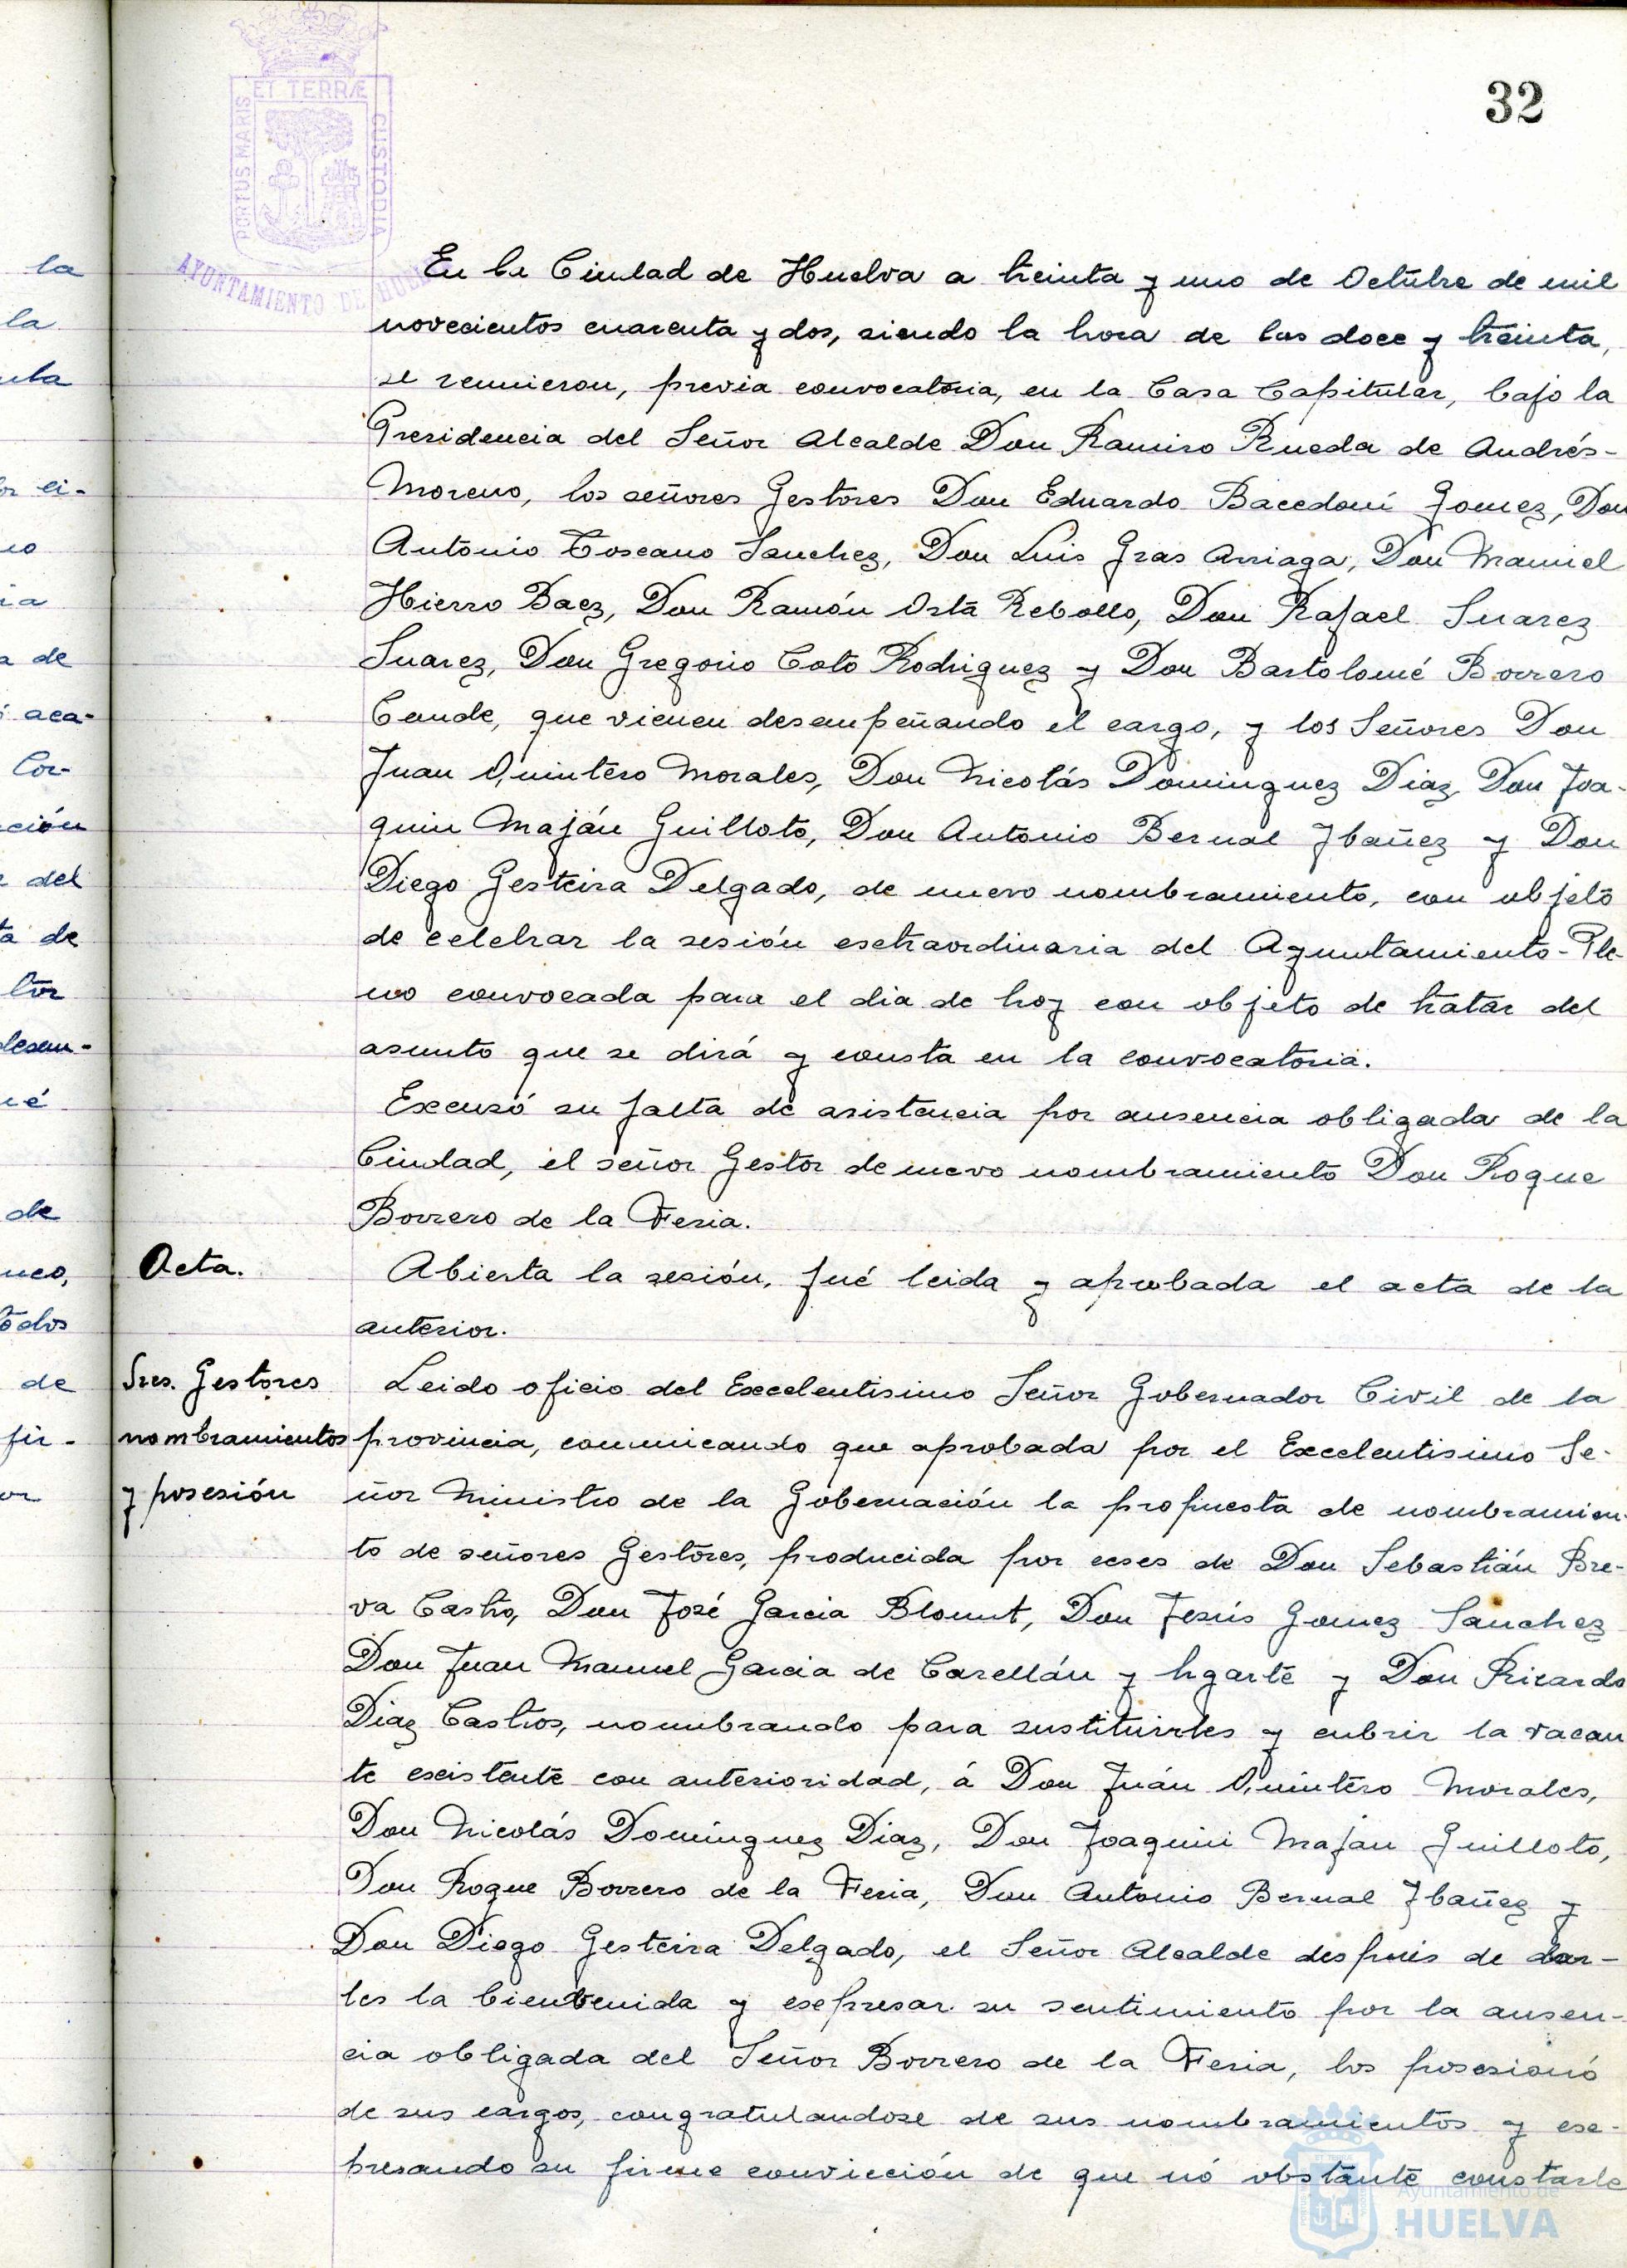 32
ET TERRÆ
PORTUS MARIS
CUSTODIA
AYUNTAMIENTO DE HUELVA
En la Ciudad de Huelva a treinta y uno de Octubre de mil
novecientos cuarenta y dos, siendo la hora de las doce y treinta,
se reunieron, previa convocatoria, en la Casa Capitular, bajo la
Presidencia del Señor Alcalde Don Ramiro Rueda de Andrés-
Moreno, los señores Gestores Don Eduardo Bacedoni Gomez, Don
Antonio Toscano Sanchez, Don Luis Gras Arriaga, Don Manuel
Hierro Baez, Don Ramón Orta Rebollo, Don Rafael Suarez
Suarez, Don Gregorio Coto Rodriguez y Don Bartolomé Borrero
Conde, que vienen desempeñando el cargo, y los Señores Don
Juan Quintero Morales, Don Nicolás Dominguez Diaz, Don Joa-
quin Maján Guilloto, Don Antonio Bernal Ybañez y Don
Diego Gesteira Delgado, de nuevo nombramiento, con objeto
de celebrar la sesión esctraordinaria del Ayuntamiento-Ple-
no convocada para el dia de hoy con objeto de tratar del
asunto que se dirá y consta en la convocatoria.
Excusó su falta de asistencia por ausencia obligada de la
Ciudad, el señor Gestor de nuevo nombramiento Don Roque
Borrero de la Feria.
Acta.
Abierta la sesión, fué leida y aprobada el acta de la
anterior.
Sres. Gestores
nombramientos
y posesión
Leido oficio del Excelentisimo Señor Gobernador Civil de la
provincia, comunicando que aprobada por el Excelentisimo Se-
ñor Ministro de la Gobernación la propuesta de nombramien-
to de señores Gestores, producida por ceses de Don Sebastián Bre-
va Castro, Don José Garcia Blount, Don Jesús Gomez Sanchez
Don Juan Manuel Garcia de Carellán y Ugarte y Don Ricardo
Diaz Castros, nombrando para sustituirles y cubrir la vacan
te escistente con anterioridad, á Don Juán Quintero Morales,
Don Nicolás Dominguez Diaz, Don Joaquin Majan Guilloto,
Don Roque Borrero de la Feria, Don Antonio Bernal Ybañez y
Don Diego Gesteira Delgado, el Señor Alcalde después de dar-
les la bienvenida y escpresar su sentimiento por la ausen-
cia obligada del Señor Borrero de la Feria, los posesionó
de sus cargos, congratulandose de sus nombramientos y esc-
presando su firme convicción de que nó obstante constarle
Ayuntamiento de
HUELVA
la
la
de
aca-
cor-
ción
del
de
desem-
de
todos
de
fir-